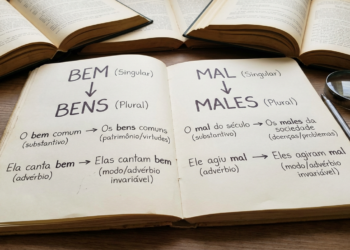 BEM (Singular)
↓
BENS (Plural)
O bem comum → Os bens comuns
(substantivo) (patrimônio/virtudes)
Ela canta bem → Elas cantam bem
(advérbio) (modo/advérbio
invariável)
MAL (Singular)
↓
MALES (Plural)
O mal do século → Os males da
(substantivo) sociedade
(doenças/problemas)
Ele agiu mal → Eles agiram mal
(advérbio) (modo/advérbio
invariável)